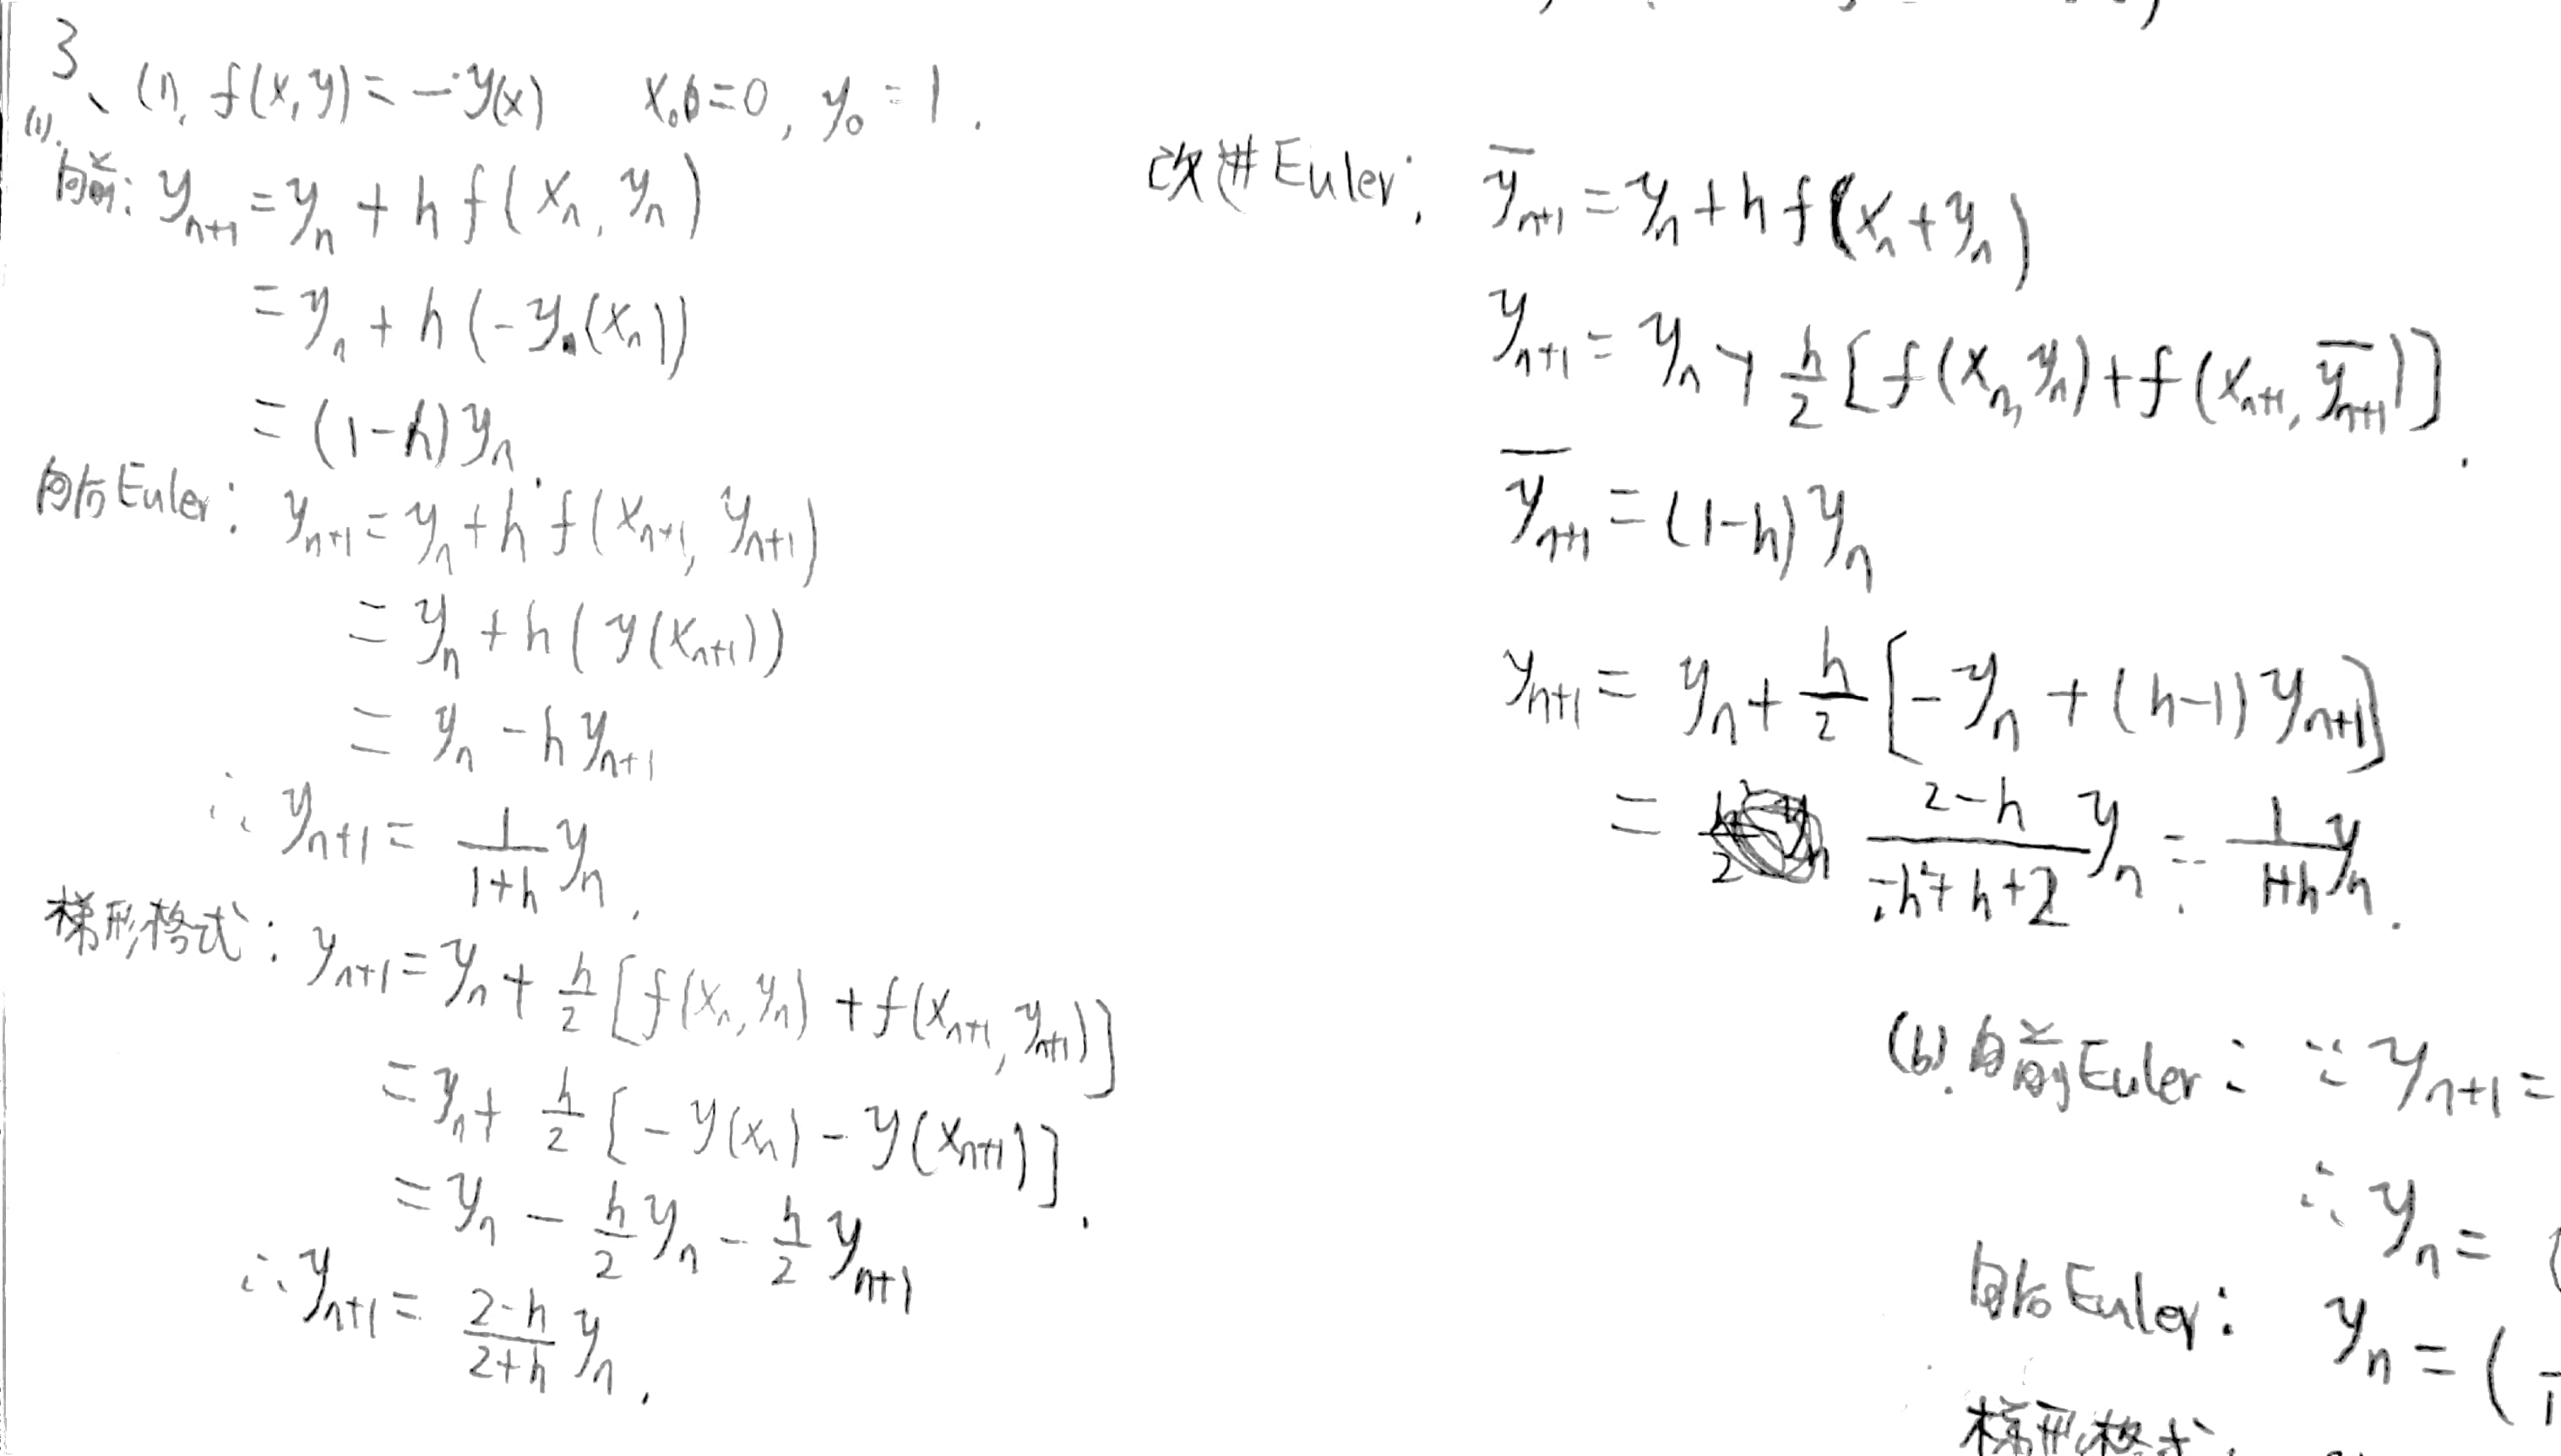 3、(1), f(x,y)=-y(x) x₀=0, y₀=1.
(1).
向前: yₙ₊₁=yₙ+hf(xₙ,yₙ)
=yₙ+h(-y(xₙ))
=(1-h)yₙ.
向后Euler: yₙ₊₁=yₙ+hf(xₙ₊₁,yₙ₊₁)
=yₙ+h(y(xₙ₊₁))
=yₙ-hyₙ₊₁
∴yₙ₊₁=\frac{1}{1+h}yₙ.
梯形格式: yₙ₊₁=yₙ+\frac{h}{2}[f(xₙ,yₙ)+f(xₙ₊₁,yₙ₊₁)]
=yₙ+\frac{h}{2}[-y(xₙ)-y(xₙ₊₁)].
=yₙ-\frac{h}{2}yₙ-\frac{h}{2}yₙ₊₁
∴yₙ₊₁=\frac{2-h}{2+h}yₙ.
改进Euler: \overline{y}ₙ₊₁=yₙ+hf(xₙ+yₙ)
yₙ₊₁=yₙ+\frac{h}{2}[f(xₙ,yₙ)+f(xₙ₊₁,\overline{yₙ₊₁})].
\overline{y}ₙ₊₁=(1-h)yₙ
yₙ₊₁=yₙ+\frac{h}{2}[-yₙ+(h-1)yₙ₊₁]
=\frac{2-h}{-h²+h+2}yₙ=\frac{1}{1+h}yₙ.
(b).向前Euler: ∵yₙ₊₁=
∴yₙ=(
向后Euler: yₙ=(
梯形格式: